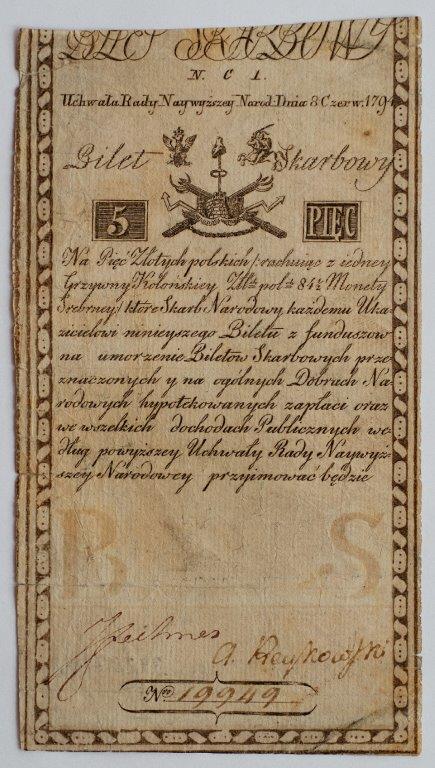 BILET SKARBOWY
N. C 1.
Uchwała Rady Naywyższey Narod: Dnia 8 Czerw. 1794
Bilet Skarbowy
5 PIĘĆ
Na Pięć Złotych polskich (: rachuiąc z iedney
Grzywny Kolońskiey Złt: pol: 84½ Monety
Srebrney:) które Skarb Narodowy każdemu Uka-
zicielowi ninieyszego Biletu z funduszow
na umorzenie Biletów Skarbowych prze-
znaczonych y na ogólnych Dobrach Na-
rodowych hypotekowanych zapłaci oraz
we wszelkich dochodach Publicznych we-
dług powyższey Uchwały Rady Naywyż-
szey Narodowey przyjmować będzie
B S
A. Reykowski
Nro 19949